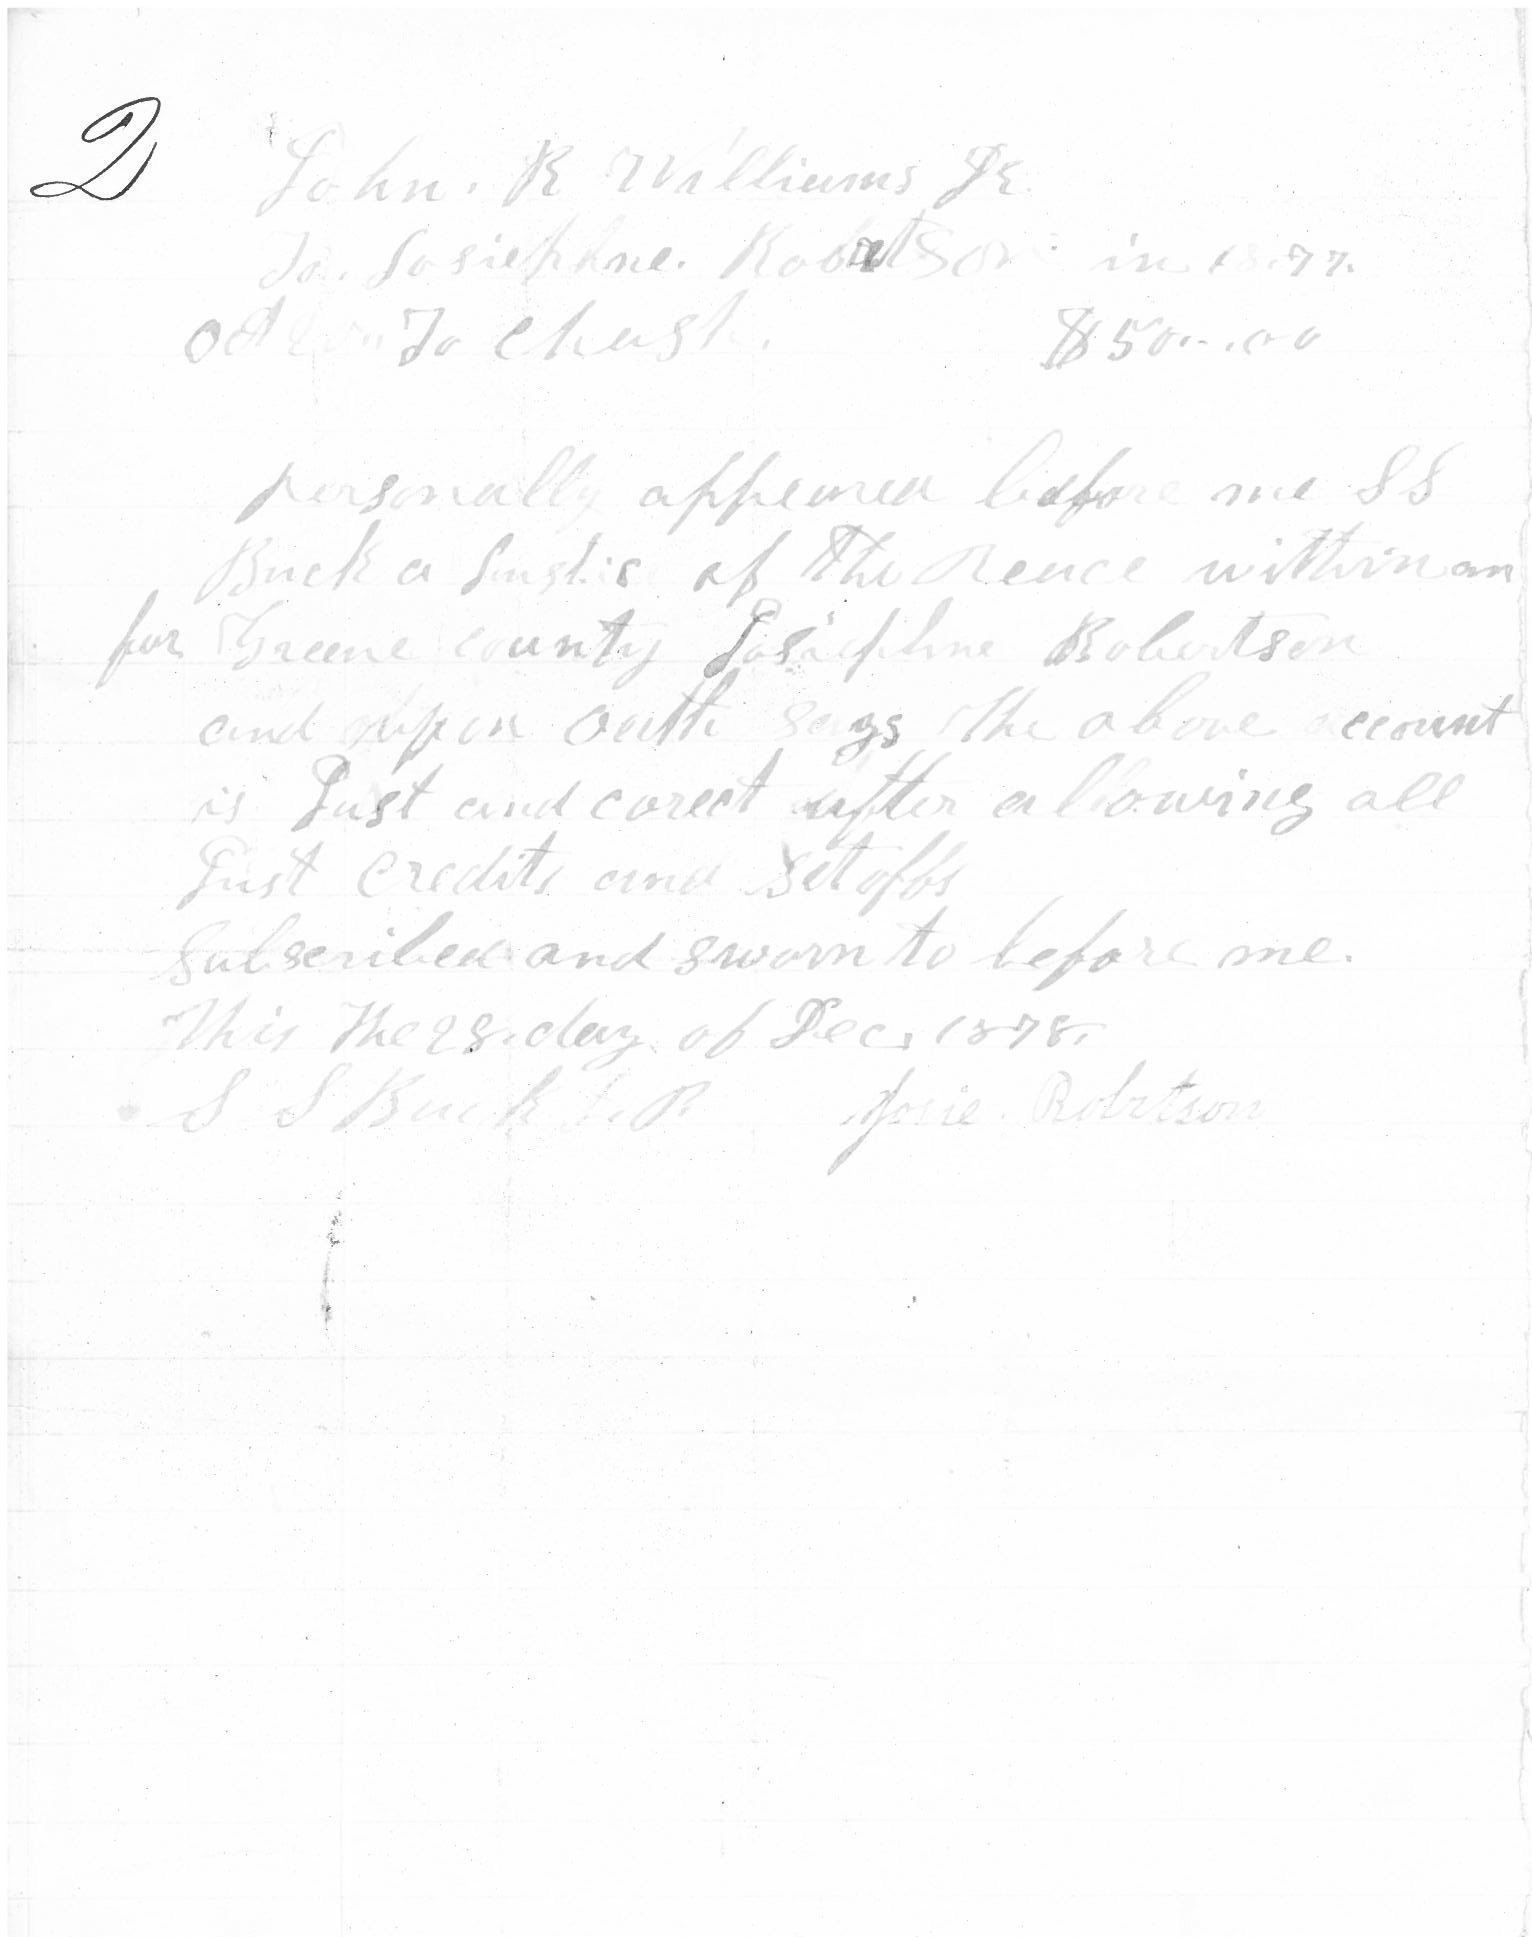 2
John. R Williams Dr.
To. Josiephine. Robertson in 1877.
Oct To Chash. $50...00
personally appeared before me S S
Buck a Justic of the Peace within an
for Greene county Josiephine Robertson
and upon oath says the above account
is Just and corect after allowing all
Just credits and set offs
Subscribed and sworn to before me.
This the 28. day of Dec. 1878.
S S Buck J. P Josie. Robrtson